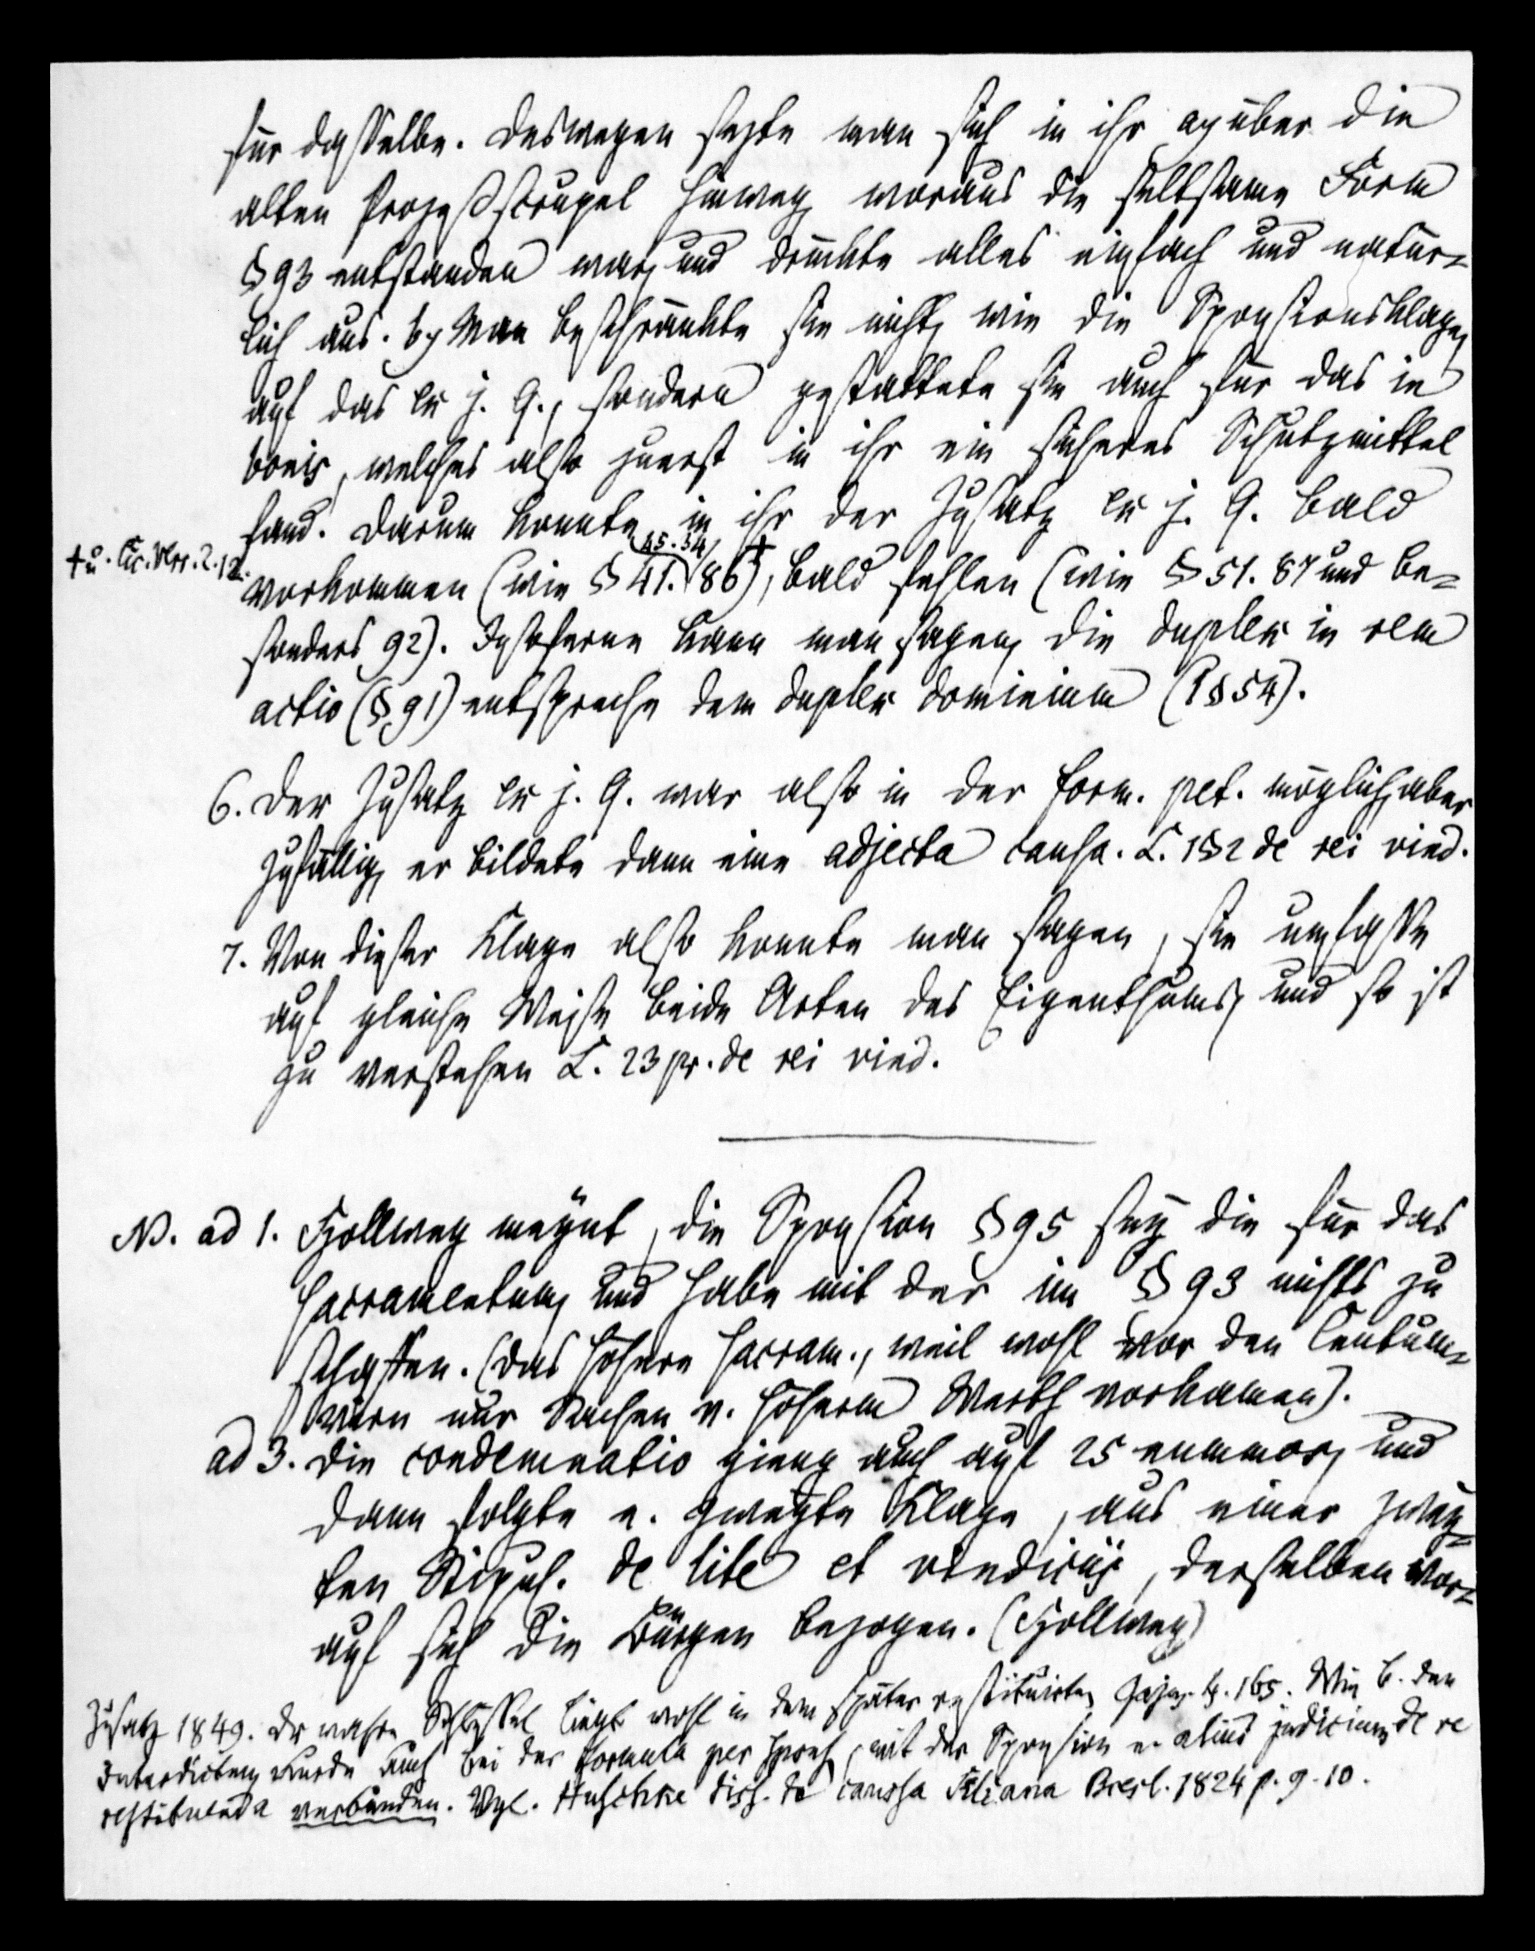 für dasselbe. Deswegen setzte man sich in ihr a) über die
alten Prozeßscrupel hinweg woraus die seltsame Form
§ 93 entstanden war, und drückte alles einfach und natür-
lich aus. b) Man beschränkte sie nicht, wie die Sponsionsklage,
auf das ex j. Q., sondern gestattete sie auch für das in
bonis, welches also zuerst in ihr ein sicheres Schutzmittel
fand. Darum konnte in ihr der Zusatz ex j. Q. bald
45. 54
† u. Cic. Verr. 2. 12.
vorkommen (wie § 41. 86 †), bald fehlen (wie § 51. 87 und be-
sonders 92). Insoferne kann man sagen, die duplex in rem
actio (§ 91) entspreche dem duplex dominium (I § 54).
6. Der Zusatz ex j. Q. war also in der form. pet. möglich, aber
zufällig, er bildete dann eine adjecta causa. L. 1 § 2 de rei vind.
7. Von dieser Klage also konnte man sagen, sie umfasse
auf gleiche Weise beide Arten des Eigenthums, und so ist
zu verstehen L. 23 pr. de rei vind.
N. ad 1. Hollweg meynt, die Sponsion § 95 sey die für das
sacramentum, und habe mit der im § 93 nichts zu
schaffen. (Das höhere sacram., weil wohl vor den Centum-
virn nur Sachen v. höherm Werth vorkamen).
ad 3. Die condemnatio gieng auch auf 25 nummos, und
dann folgte e. zweyte Klage, aus einer zwey-
ten Stipul. de lite et vindiciis, derselben wor-
auf sich die Bürgen bezogen. (Hollweg)
Zusatz 1849. Der wahre Schlüssel liegt wohl in dem später restituirten Gajus 4. 165. Wie b. den
Interdicten, wurde auch bei der formula per spons. mit der Sponsion e. aliud judicium de re
restituenda verbunden. Vgl. Huschke diss. de caussa Siliana Bresl. 1824 p. 9. 10.